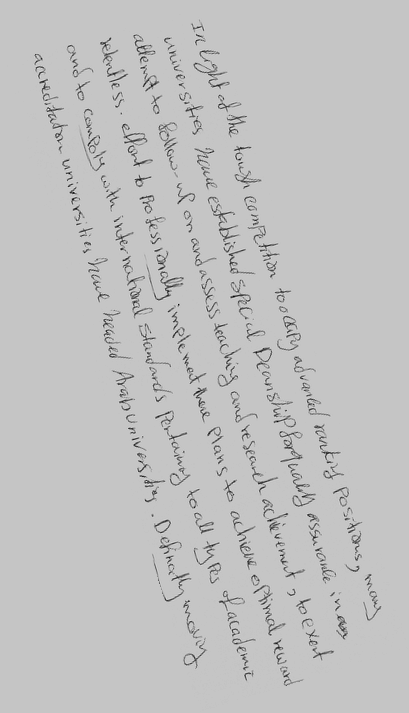 In light of the tough competition to occupy advanced ranking positions, many
universities have established special Deanship for quality assurance in an
attempt to follow-up on and assess teaching and research achievement, to exert
relentless. effort to Professionally implement these plans to achieve optimal reward
and to comply with international standards pertaining to all types of academic
accreditation universities have headed Arab universities. Definatly moving